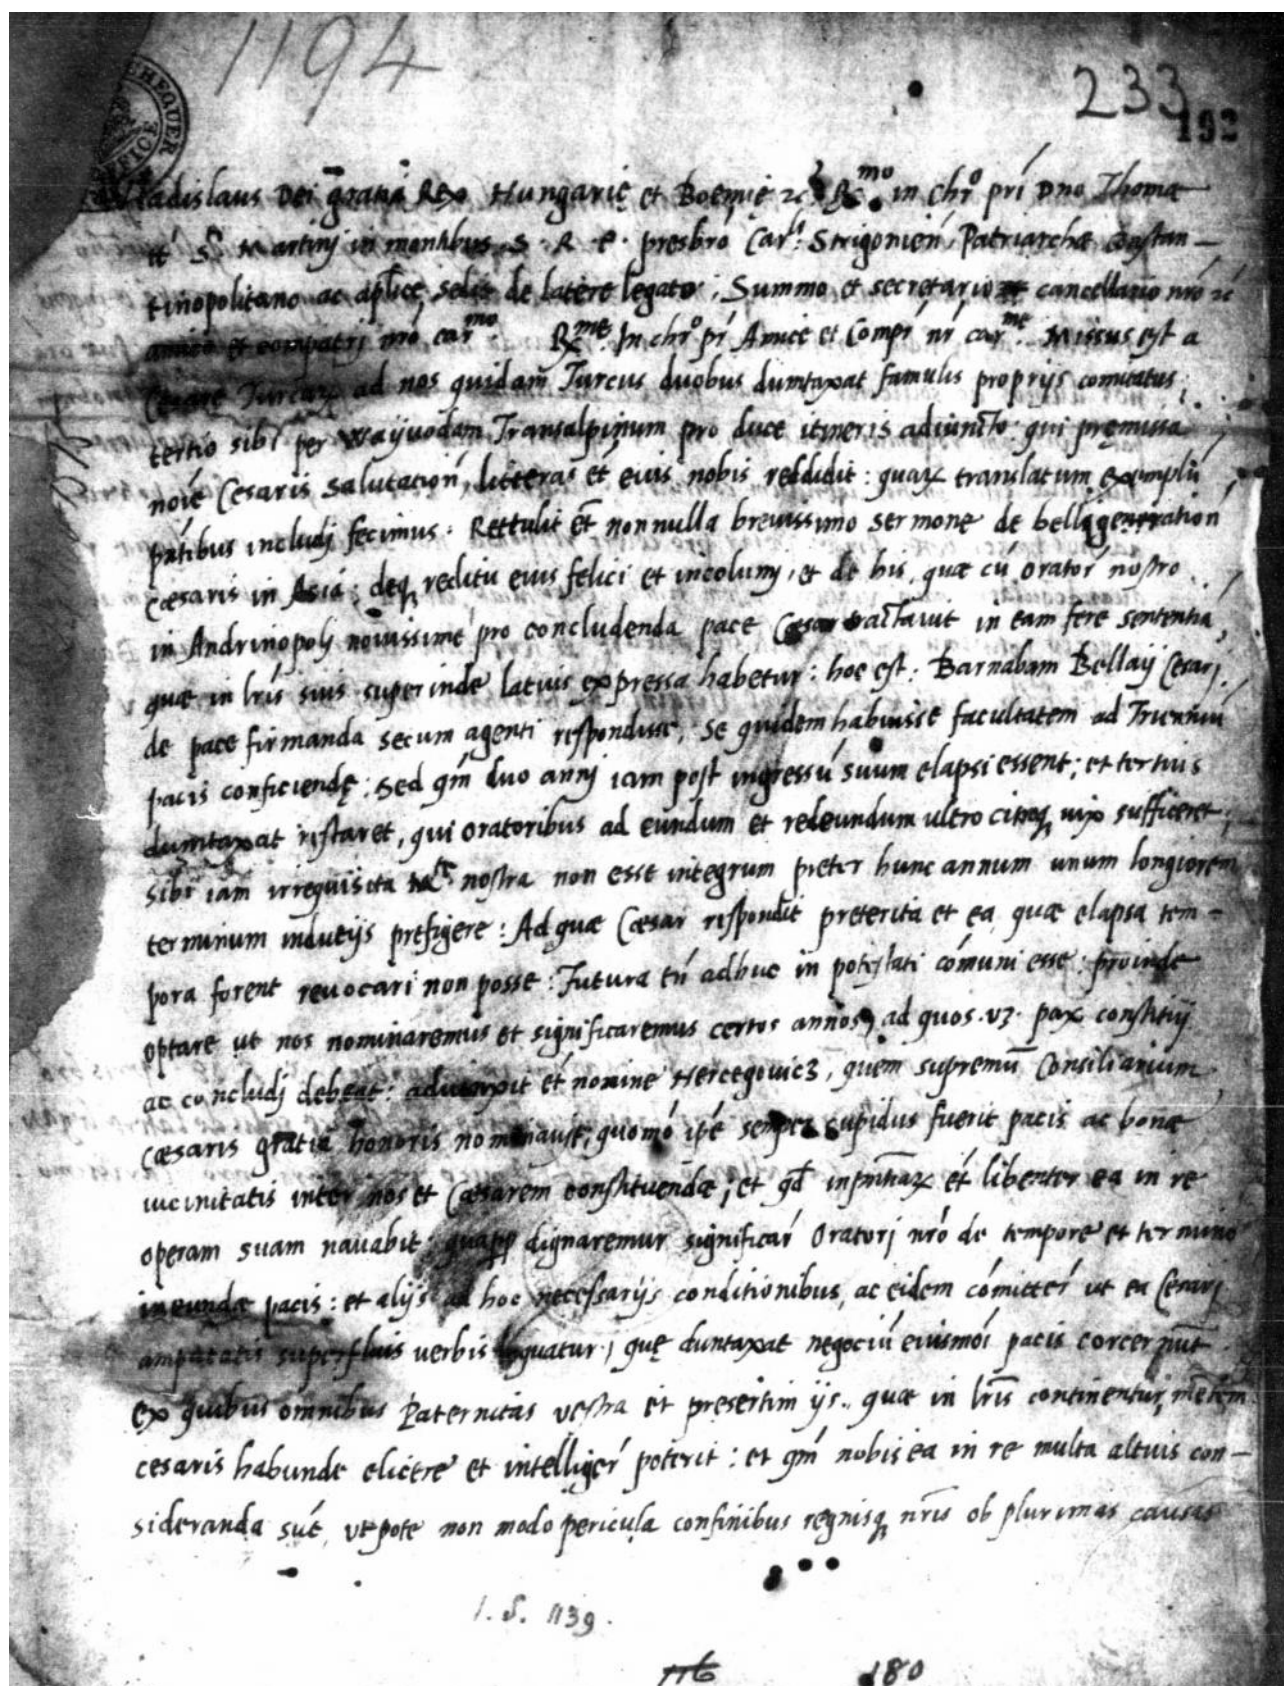 1194
233
192
CHEQUER
FFICE
ladislaus Dei gratia Rex Hungarię et Boemię zc Rmo in Chro pri Dno Thomae
tt Sti Martinj in montibus S. R. E. presbro Carli Strigonien Patriarchae Constan-
tinopolitano ac aplice sedis de latere legato; Summo et secretario cancellario nro zc
amico et compatrj nro carmo Rme In chro pr Amice et Compr nr carme. Missus est a
Cesare Turcarum ad nos quidam Turcus duobus dumtaxat famulis proprijs comitatus;
tertio sibi per Wayuodam Transalpinum pro duce itineris adiuncto: qui pręmissa
noie Cesaris salutation, litteras et eius nobis reddidit: quarum translatum exemplu
pntibus includj fecimus. Rettulit et nonnulla breuissimo sermone de belligeneration
Caesaris in Asia; deq reditu eius felici et incolumj, et de his, quae cu orator nostro
in Andrinopolj nouissime pro concludenda pace Caesar tractauit in eam fere sententia,
quae in lris suis superinde latius expressa habetur: hoc est: Barnabam Bellaij Cesarj
de pace firmanda secum agenti respondisse, se quidem habuisse facultatem ad Trienniu
pacis conficiendę: Sed qm duo annj iam post ingressu suum elapsi essent; et tertius
dumtaxat restaret, qui oratoribus ad eundum et redeundum ultro citroq uix sufficeret;
sibi iam irrequisita Mte nostra non esse integrum preter hunc annum unum longiorem
terminum indutijs prefigere: Ad quae Caesar respondit preterita et ea quae elapsa tem-
pora forent reuocari non posse: Futura tn adhuc in potestati comuni esse: proinde
optare ut nos nominaremus et significaremus certos annos, ad quos .uz. pax constituj
ac concludj debeat: aduexit et nomine Hercegouicz, quem supremu Consiliarium
Caesaris gratia honoris nominauit, quomo ipe semper cupidus fuerit pacis ac bonae
uicinitatis inter nos et Caesarem constituendae; et qd et libenter ea in re
operam suam nauabit; quapp dignaremur significar Oratorj nro de tempore et termino
ineundae pacis: et alijs ad hoc necessarijs conditionibus, ac eidem comitter ut ea Cesarj
amputatis superfluis uerbis loquatur, quę duntaxat negociu eiusmoi pacis concernut
Ex quibus omnibus Paternitas vestra et presertim ijs, quae in lris continentur, mentem
cesaris habunde elicere et intelliger poterit: et qm nobis ea in re multa altius con-
sideranda sut, utpote non modo pericula confinibus regnisq nris ob plurimas causas
1. S. 1139.
116 180